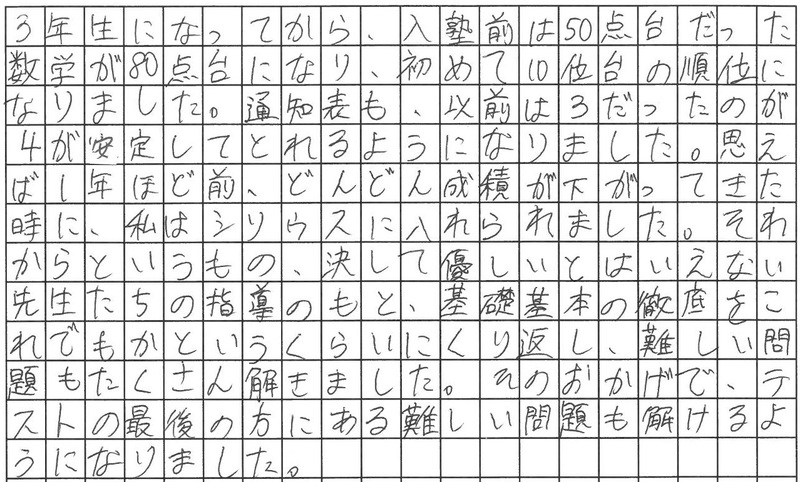 3年生になってから、入塾前は50点台だった
数学が80点台になり、初めて10位台の順位に
なりました。通知表も、以前は3だったのが
4が安定してとれるようになりました。思え
ば1年ほど前、どんどん成積が下がってきた
時に、私はシリウスに入れられました。それ
からというもの、決して優しいとはいえない
先生たちの指導のもと、基礎基本の徹底をこ
れでもかというくらいにくり返し、難しい問
題もたくさん解きました。そのおかげで、テ
ストの最後の方にある難しい問題も解けるよ
うになりました。